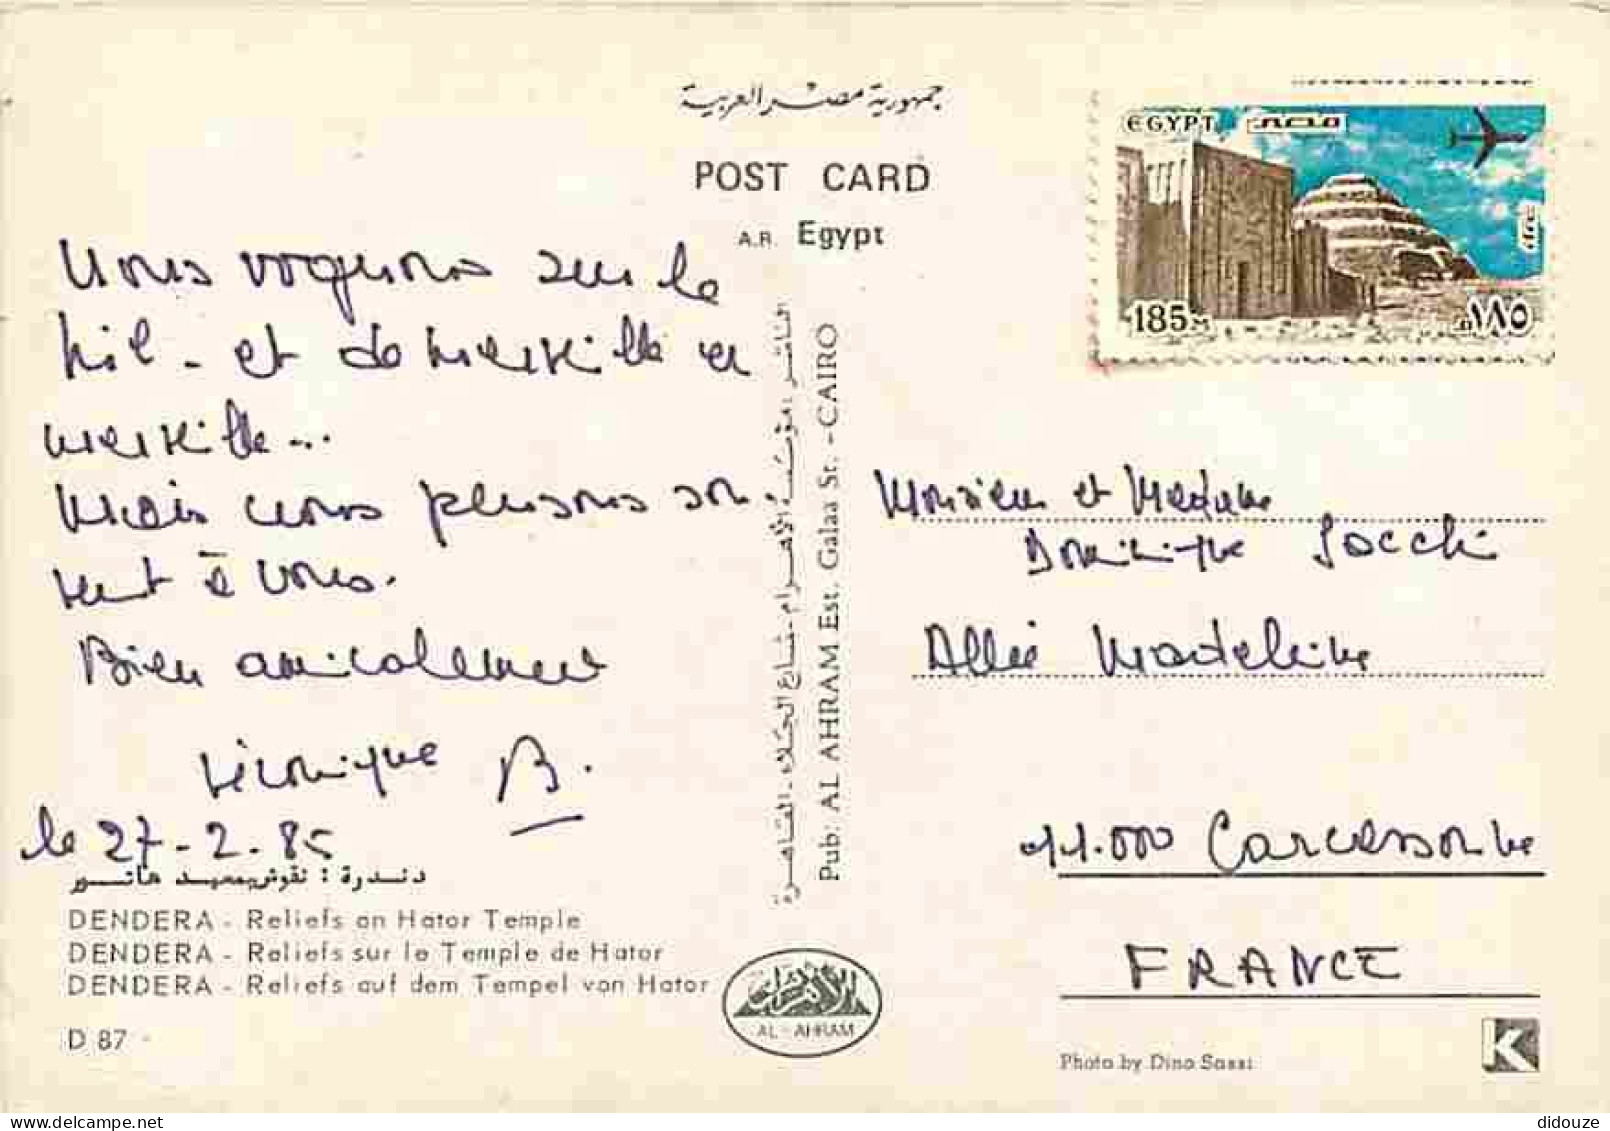 جمهورية مصر العربية
POST CARD
A.R. Egypt
EGYPT
185
١٨٥
Nous voguons sur le
Nil - et de merveille en
merveille...
Mais nous pensons sou
vent à vous.
Bien amicalement
Véronique B.
le 27-2-85
دندرة : نقوش بمعبد هاتور
DENDERA - Reliefs on Hator Temple
DENDERA - Reliefs sur le Temple de Hator
DENDERA - Reliefs auf dem Tempel von Hator
D 87
الناشر : مؤسسة الأهرام - شارع الجلاء - القاهرة
Pub: AL AHRAM Est. Galaa St. - CAIRO
AL - AHRAM
Monsieur et Madame
Dominique Socchi
Allée Madeleine
11.000 Carcassonne
FRANCE
Photo by Dino Sassi
K
didouze